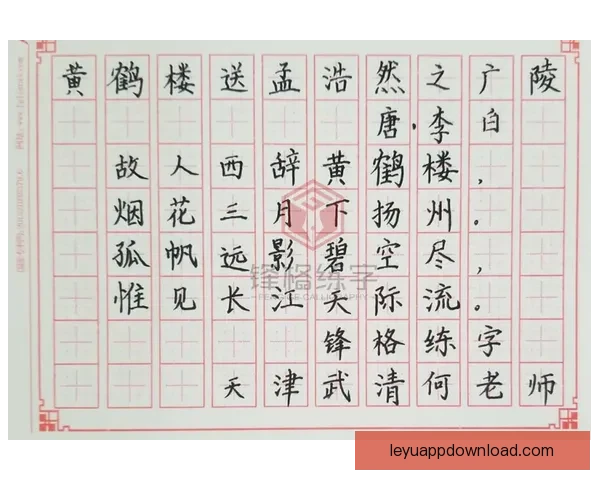 黄鹤楼送孟浩然之广陵
唐·李白
故人西辞黄鹤楼，
烟花三月下扬州。
孤帆远影碧空尽，
惟见长江天际流。
锋格练字
天津武清何老师
锋格练字
leyuappdownload.com